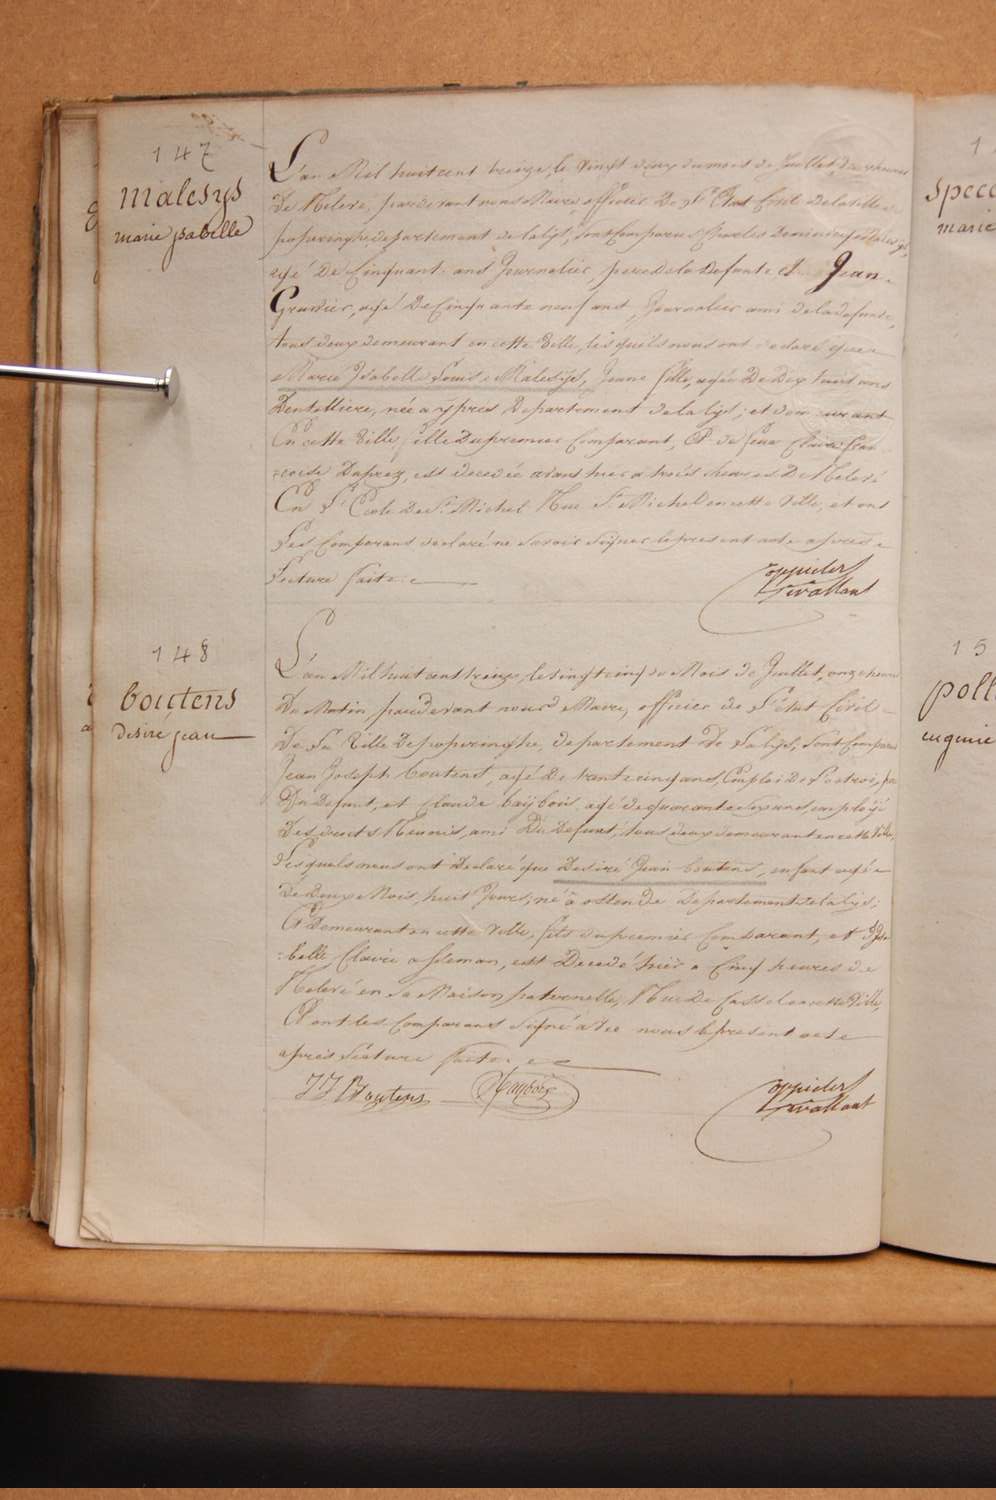 147
malesys
marie isabelle
L'an Mil huit cent treize, le vingt deux du mois de Juillet, deux heures
De Relevé, pardevant nous Maire, officier De l'Etat Civil de la ville de
poperinghe departement de la lys, sont Comparus Charles Dominique Malesys,
agé De Cinquante ans Journalier, pere de la Defunte et Jean
Gruwier, agé De Cinquante neuf ans, Journalier ami de la defunte,
tous deux demeurant en cette Ville, lesquels nous ont declaré que
Marie Isabelle Louise Malesijs, Jeune fille, agée De Dix huit ans
Dentelliere, née a ypres Departement de la lijs, et demeurant
En cette Ville, fille Du premier Comparant, Et de feue Claire fran-
=coise Dupréz, est decedée avant hier a trois heures De Relevé
En l'Ecole De St. Michel Rue St. Michel en cette Ville, et ont
Les Comparans declaré ne savoir signer le present acte apres
Lecture faite
148
boutens
desiré jean
L'an Mil huit cent treize, le vingt cinq du Mois de Juillet, onze heures
Du Matin, pardevant nous Maire, officier de l'état Civil
De La Ville De poperinghe, departement De la lijs, sont Comparu
Jean Joseph boutens, agé De trente cinq ans, Employé De l'octroi, pere
Du Defunt, et Claude baijbois, agé de quarante six ans, employé
Des droits Réunis, ami Du Defunt, tous deux demeurant en cette Ville,
Lesquels nous ont Declaré que Desiré Jean boutens, enfant agé
De Deux Mois, huit Jours, né à ostende Departement de la lijs,
Et Demeurant en cette Ville, fils du premier Comparant, et D'Isa-
=belle Claire, est Decedé hier a Cinq heures de
Relevé en Sa Maison paternelle, Rue De Cassel en cette Ville,
Et ont les Comparans Signé avec nous le present acte
apres Lecture faite
JJ Boutens
spee
marie
15
poll
eugenie